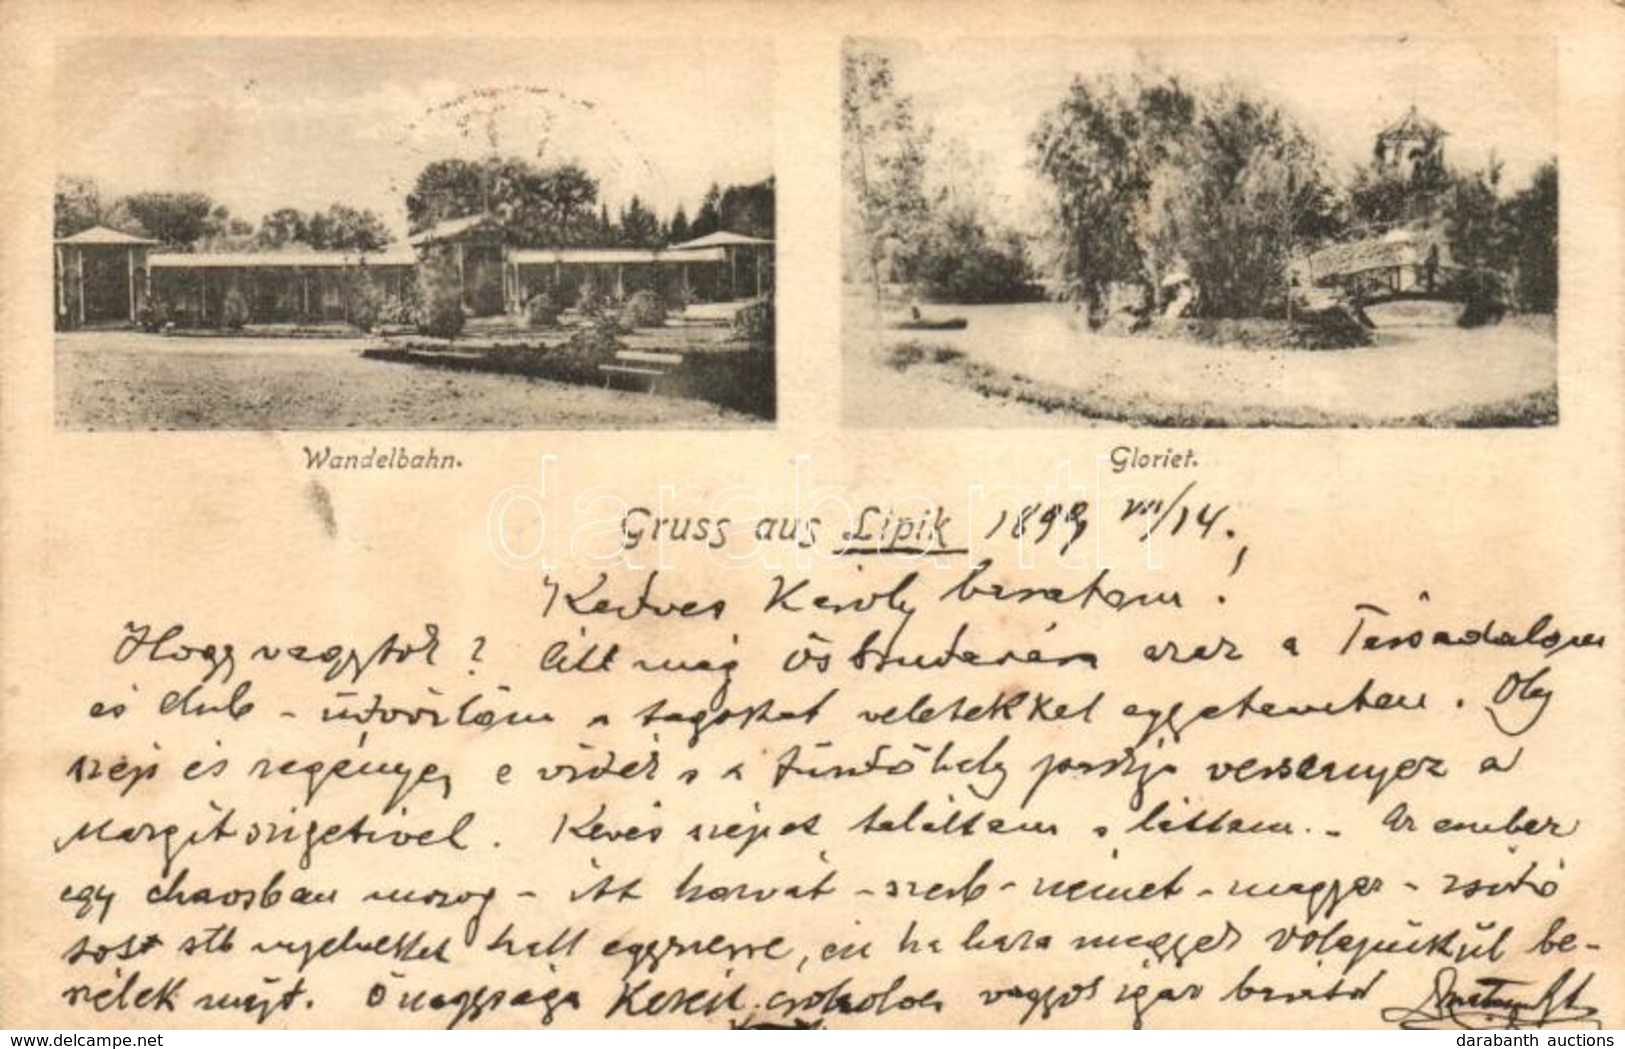 Wandelbahn.
Gloriet.
darabanth
Gruss aus Lipik 1899 VII/14.
Kedves Károly barátom!
Hogy vagytok? itt még a Társadalom
és club - üdvözlöm a tagokat veletekkel egyetemben. Oly
szép és regényes e vidék s a fürdőhely parkja versenyez a
Margitszigetivel. Kevés szépet találtam s láttam. - Az ember
egy chaosban mozog - itt horvát - szerb - német - magyar - zsidó
stb nyelveket hall egyszerre, én ha haza megyek volapükül be-
szélek majd. Őnagysága kezeit csókolva vagyok igaz barátod
delcampe.net
darabanth auctions